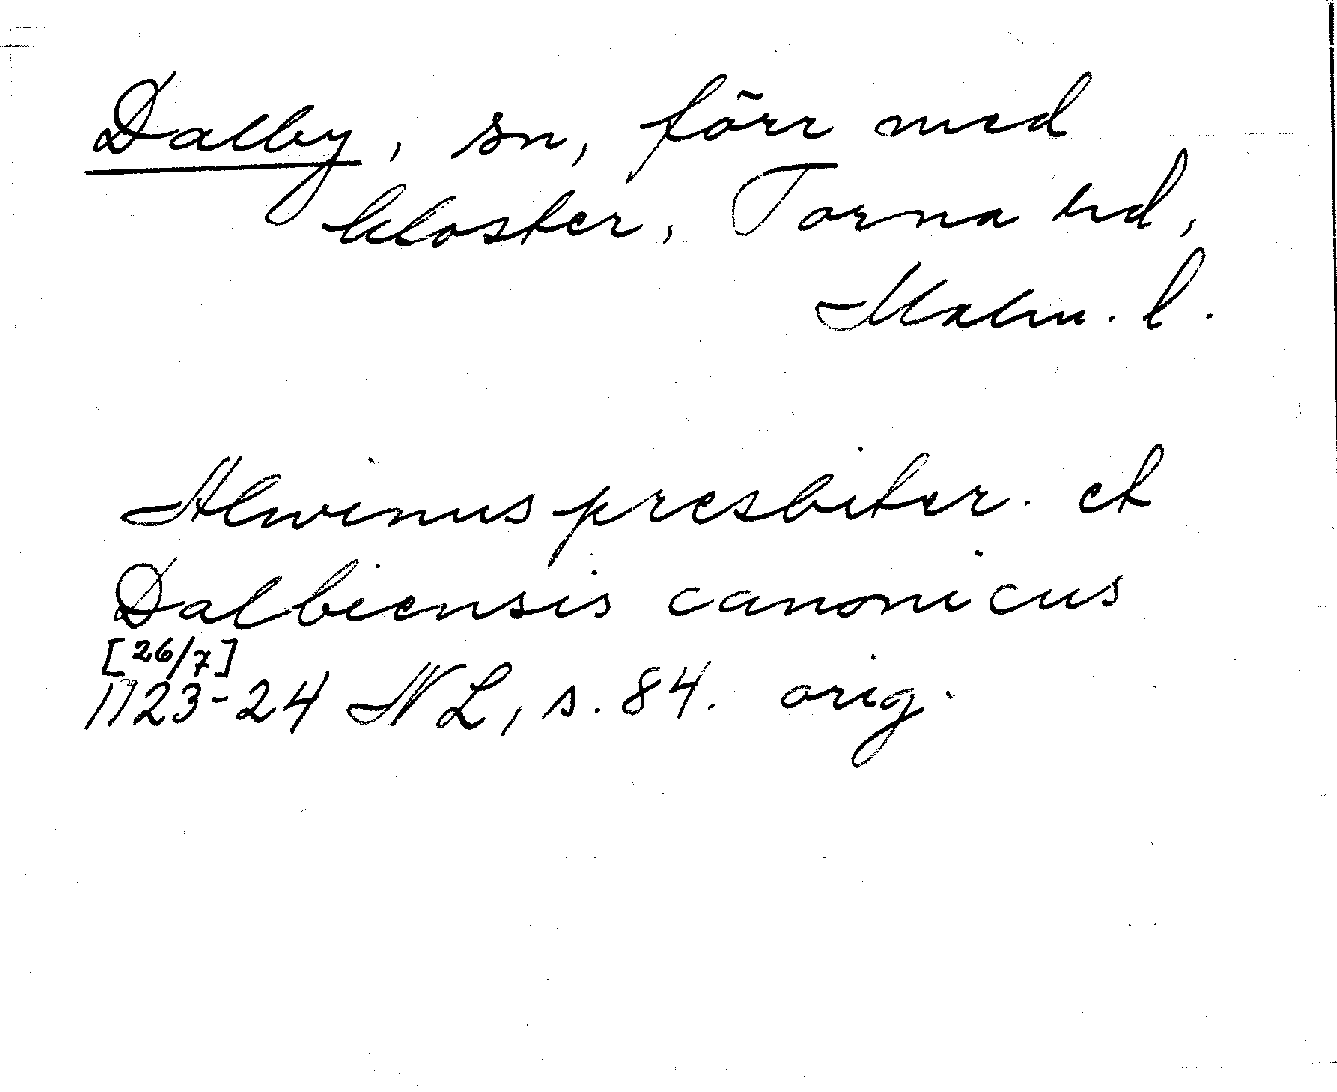 Dalby, sn, förr med
kloster, Torna hd,
Malm. l.
Alwinus presbiter. et
Dalbiensis canonicus
[26/7]
1123-24 NL, s. 84. orig.